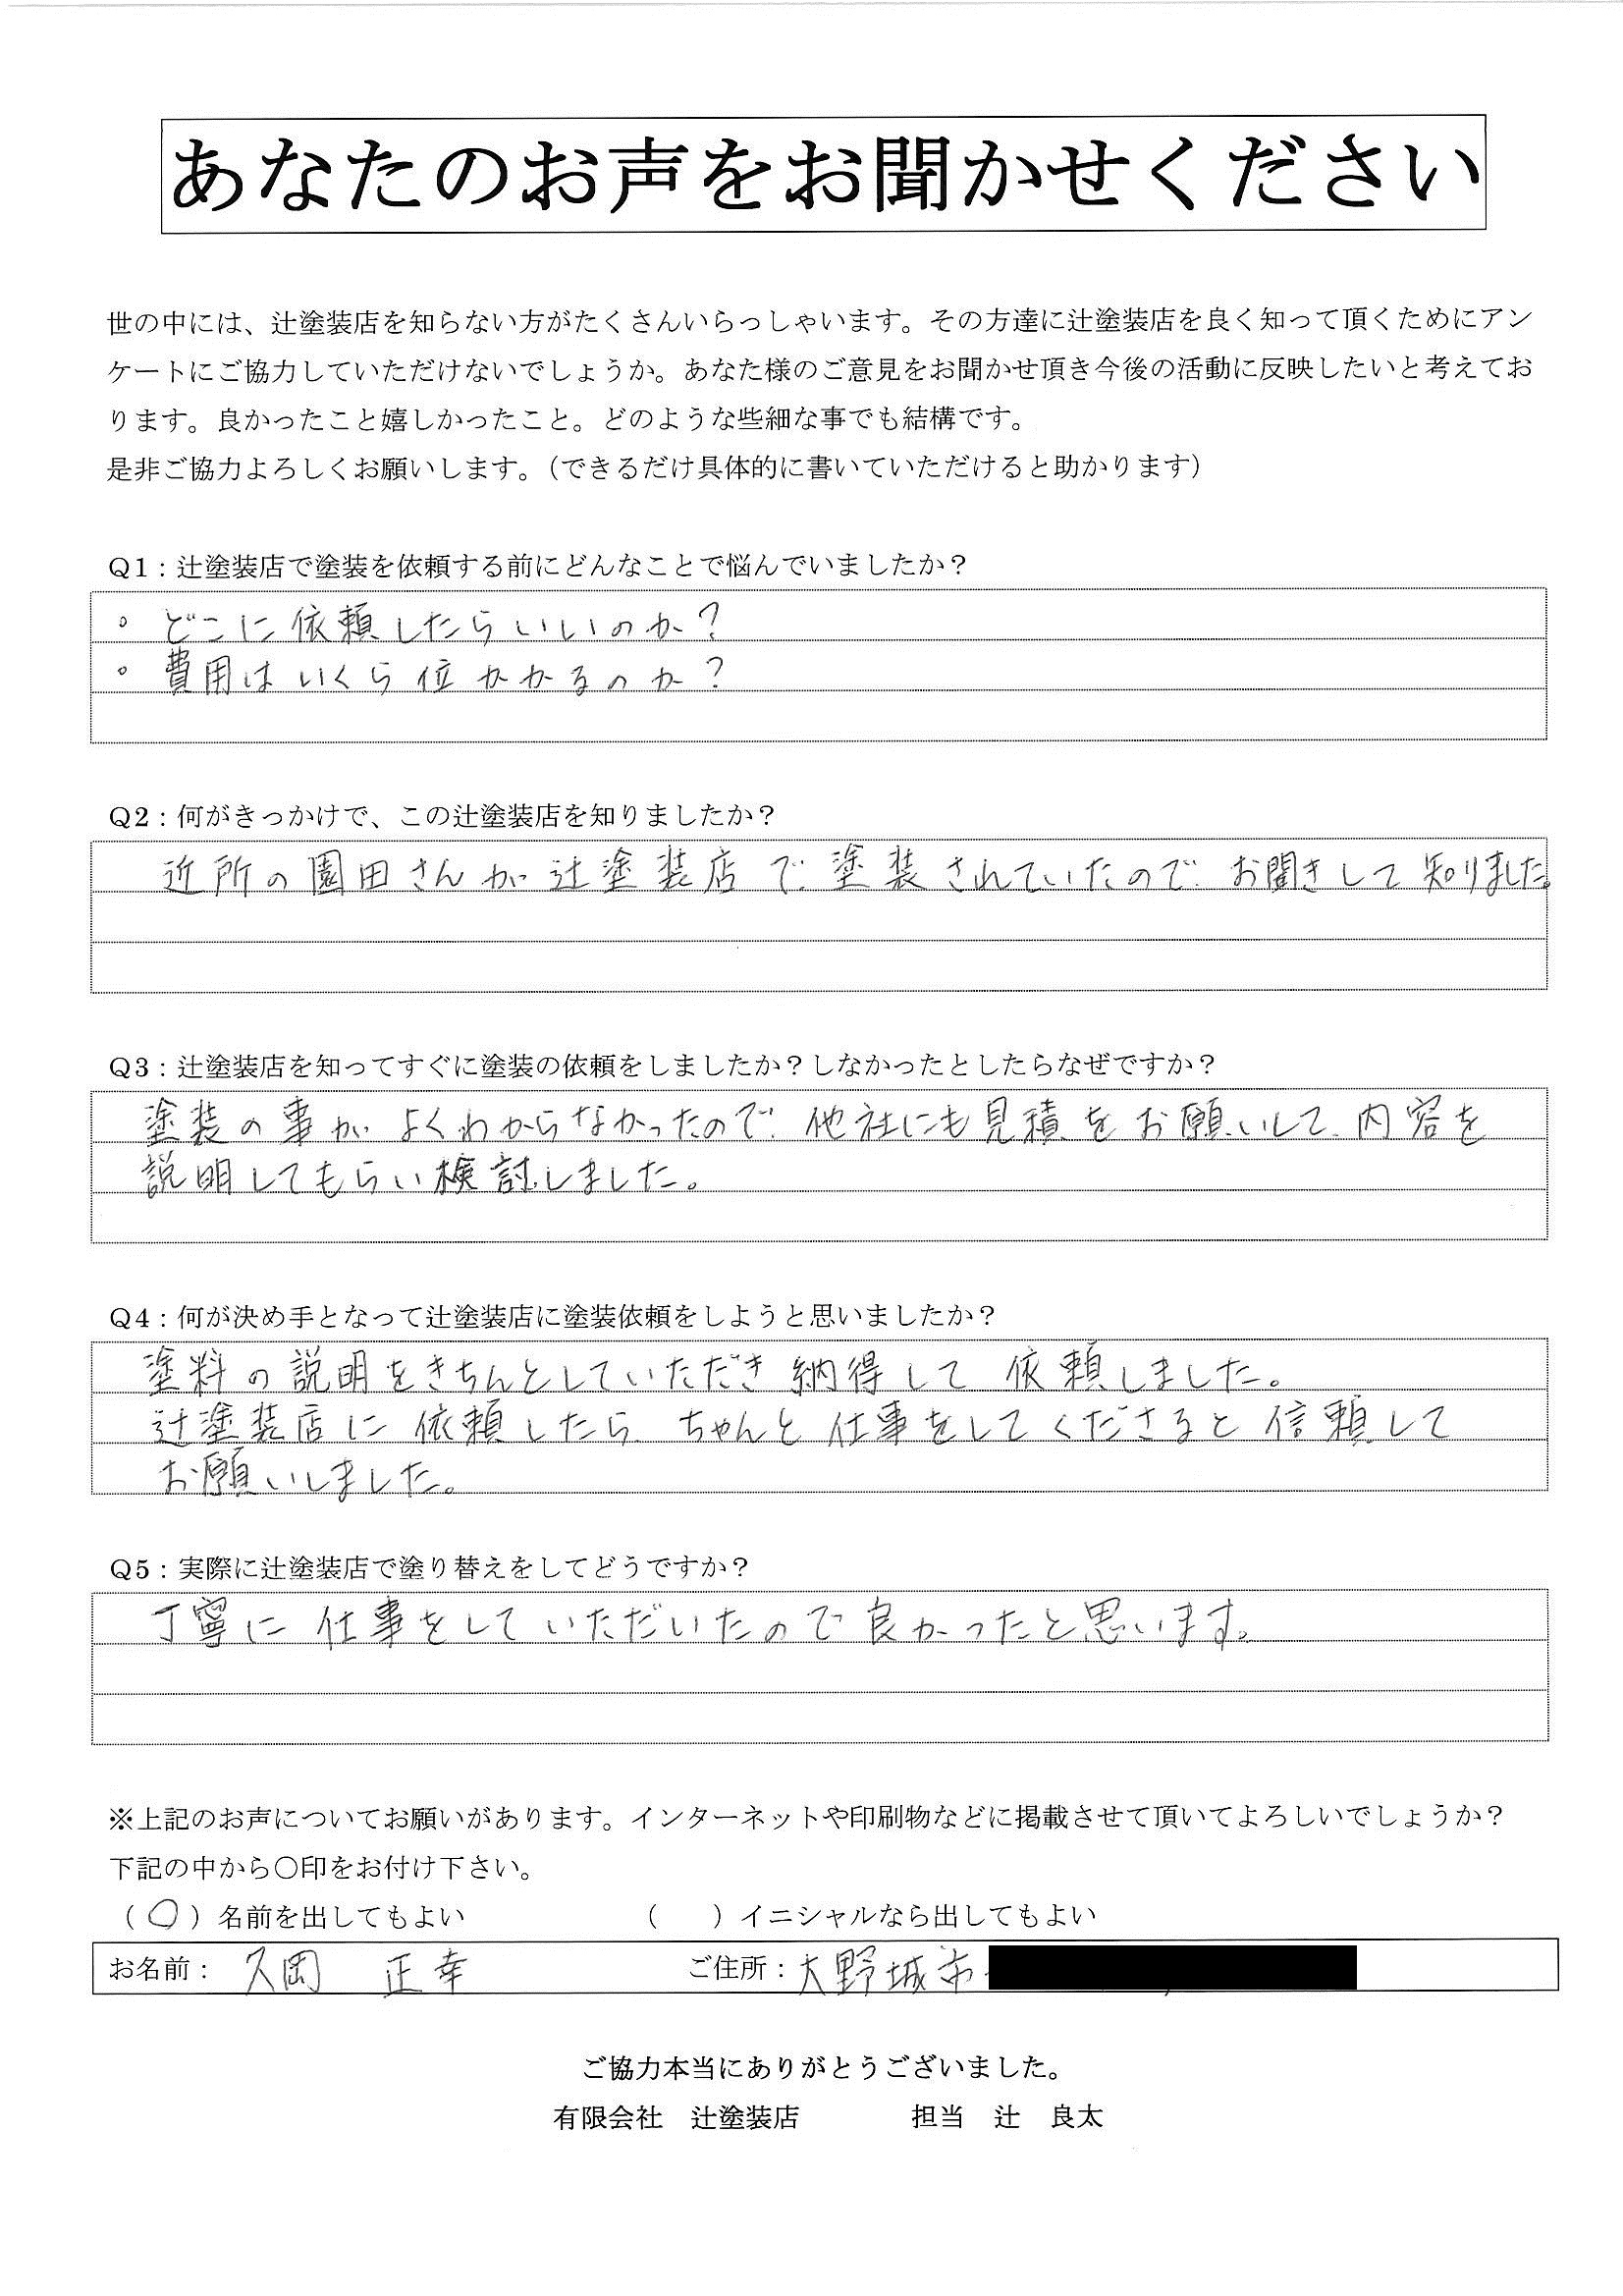 あなたのお声をお聞かせください
世の中には、辻塗装店を知らない方がたくさんいらっしゃいます。その方達に辻塗装店を良く知って頂くためにアン
ケートにご協力していただけないでしょうか。あなた様のご意見をお聞かせ頂き今後の活動に反映したいと考えてお
ります。良かったこと嬉しかったこと。どのような些細な事でも結構です。
是非ご協力よろしくお願いします。（できるだけ具体的に書いていただけると助かります）
Q1：辻塗装店で塗装を依頼する前にどんなことで悩んでいましたか？
。どこに依頼したらいいのか？
。費用はいくら位かかるのか？
Q2：何がきっかけで、この辻塗装店を知りましたか？
近所の園田さんが辻塗装店で塗装されていたのでお聞きして知りました。
Q3：辻塗装店を知ってすぐに塗装の依頼をしましたか？しなかったとしたらなぜですか？
塗装の事がよくわからなかったので、他社にも見積をお願いして、内容を
説明してもらい検討しました。
Q4：何が決め手となって辻塗装店に塗装依頼をしようと思いましたか？
塗料の説明をきちんとしていただき納得して依頼しました。
辻塗装店に依頼したら、ちゃんと仕事をしてくださると信頼して
お願いしました。
Q5：実際に辻塗装店で塗り替えをしてどうですか？
丁寧に仕事をしていただいたので良かったと思います。
※上記のお声についてお願いがあります。インターネットや印刷物などに掲載させて頂いてよろしいでしょうか？
下記の中から〇印をお付け下さい。
（〇）名前を出してもよい　（　）イニシャルなら出してもよい
お名前：久岡　正幸　ご住所：大野城市
ご協力本当にありがとうございました。
有限会社　辻塗装店　担当　辻　良太